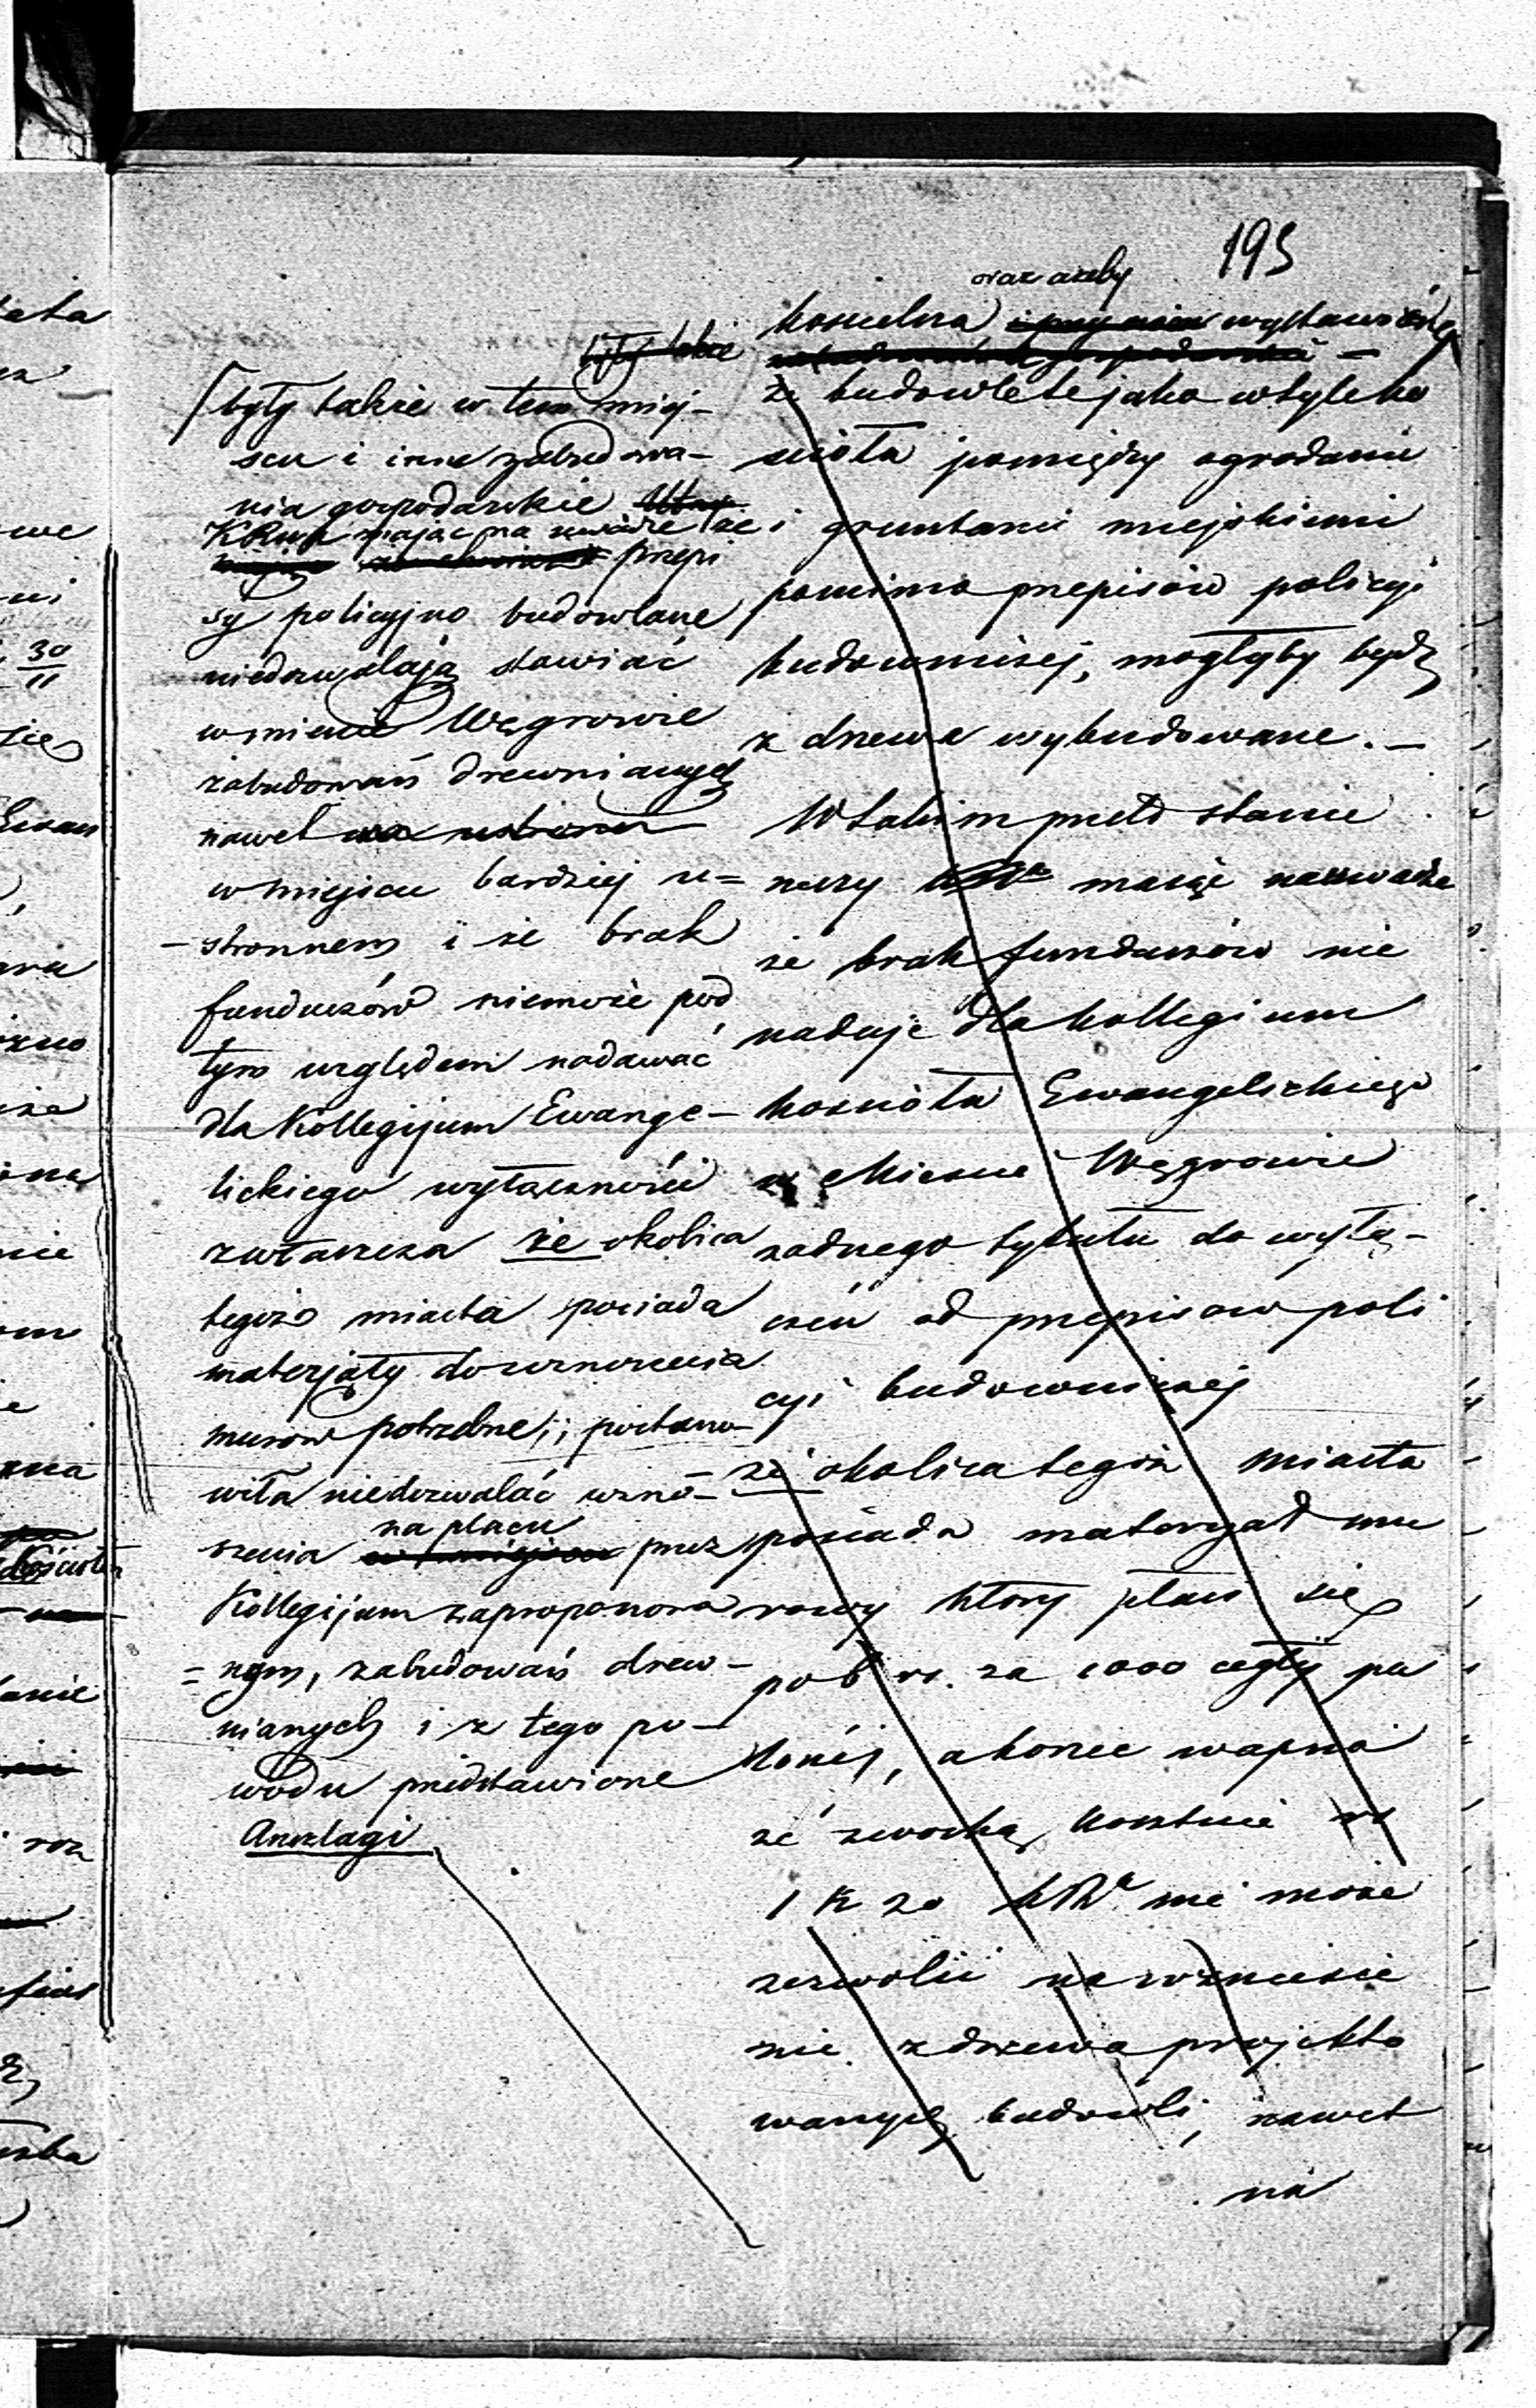 193
oraz ażeby
kościelna i przy nim wystawione
były także
były także w tem miej-
scu i inne zabudowa-
nia gospodarskie
KRząd mając na uwadze że
przepi
sy policyjno budowlane
niedozwalają stawiać
w mieście Węgrowie
zabudowań drewnianych
nawet na ustroniu
w miejscu bardziej u=
-stronnem i że brak
funduszów niemoże pod
tym względem nadawać
dla Kollegijum Ewange-
lickiego wyłączności
zwłaszcza że okolica
tegoż miasta posiada
materjały do wznoszenia
murów potrzebne, postano-
wiła niedozwalać wzno-
na placu
szenia w miejscu przez
Kollegijum zapropono­wa
=nym, zabudowań drew-
nianych i z tego po-
wodu przedstawione
Anszlagi
że budowle te jako w tyle ko
ścioła pomiędzy ogrodami
i gruntami miejskiemi
pomimo przepisów policyi
budowniczej, mogłyby być
z drzewa wybudowane. -
W takim przeto stanie
rzeczy mając na uwadze
że brak funduszów nie
nadaje dla Kollegium
kościoła Ewangelickiego
w Mieście Węgrowie
żadnego tytułu do wyłą-
czeń od przepisów poli
cyi budowniczej
że okolica tegoż miasta
posiada materyał mu
rowy który płaci się
po 6 rs. za 1000 cegły pa
lonéj, a korzec wapna
ze zwózką kosztuie rs
1 k 20 nie może
zezwolić na wzniesie
nie z drzewa projekto
wanych budowli, nawet
na